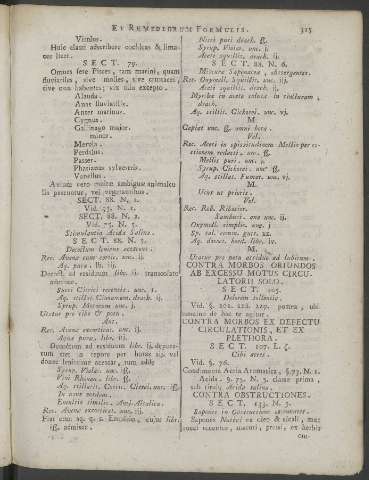 ET REMEDIORUM FORMULIS. 315
Vitulus.
Huic classi adscribere cochleas & lima-
ces licet.
SECT. 79.
Omnes fere Pisces, tam marini, quam
fluviatiles, sive molles, sive crustacei,
sive cum habentes; vix ullo excepto.
Alauda.
Anas fluviatilis.
Anser marinus.
Cygnus.
Gallinago major.
minor.
Merula.
Perdrix.
Passer.
Phasianus sylvestris.
Vanellus.
Avium vero multæ ambiguæ animalcu-
lis pascuntur, vel vegetantibus.
SECT. 88. N. 1.
Vid. 75. N. 1.
SECT. 88. N. 2.
Vid. 75. N. 5.
Stimulantia Acida Salina.
SECT. 88. N. 5.
Decoctum leniens acetosum.
Rec. Avenæ cum cortic. unc. ij.
Aq. pura. lib. iij.
Decocti ad residuum libr. ij. transcolato
admisce.
Succi Citrici recentis. unc. 1.
Aq. stillat. Cinnamom. drach. ij.
Syrup. Mororum unc. j.
Utatur pro cibo & potu.
Aut.
Rec. Avenæ excorticat. unc. ij.
Aquæ puræ, libr. iij.
Decoctum ad residuum libr. ij. depura-
tum
donec leniter acescat, tum adde
Syrup. Violar. unc. ß.
Vini Rhenan. libr. ß.
Aq. stillatit. Cortic. Citrei. unc. ß.
In usus eosdem.
Emulsio similis Anti-Alcalica.
Rec. Avenæ excorticat. unc. iij.
Fiat cum aq. q. s. Emulsio, cujus libr.
iß. admisce.
Nitri puri drach. ß.
Syrup. Violar. unc. j.
Aceti squillit. drach. ij.
SECT. 88. N. 6.
Mixtura Saponacea, abstergenter.
Rec. Oxymell. Squillit. unc. iij.
Aceti squillit. drach. ij.
Myrrhæ in aceto solutæ in tincturam,
drach.
Aq. stillit. Cichorei. unc. vj.
M.
Capiat unc. ß. omni hora.
Vel.
Rec. Aceti in spissitudinem Mellis per co-
ctionem redacti. unc. ß.
Mellis puri. unc. j.
Syrup. Cichorei. unc. ß.
Aq. stillat. Fumar. unc. vj.
M.
Usus ut prioris.
Vel.
Rec. Rob. Ribesior.
Sambuci. ana unc. ij.
Oxymell. simplic. unc. j
Sp. sal. comm. gutt. xx.
Aq. decoct. hord. libr. iv.
M.
Utatur pro potu accidulo ad lubitum.
CONTRA MORBOS ORIUNDOS
AB EXCESSU MOTUS CIRCU-
LATORII SOLO.
SECT. 105.
Dolorem tollentia.
Vid. §. 202. 228. 229. porro, ubi
nominatim de hac re agitur.
CONTRA MORBOS EX DEFECTU
CIRCULATIONIS, ET EX
PLETHORA.
SECT. 107. L. ζ.
Cibi acres.
Vid. §. 76.
Condimenta Acria Aromatica, §. 75. N. 1.
Acida. §. 75. N. 5. classe prima,
sub titul. Acida salina.
CONTRA OBSTRUCTIONES.
SECT. 133. N. 5.
Sapones in Obstructione resolventes.
Sapones Nativi ex oleo & alcali, mu-
rorum recentes, maturi, primi, ex herbis
cru-